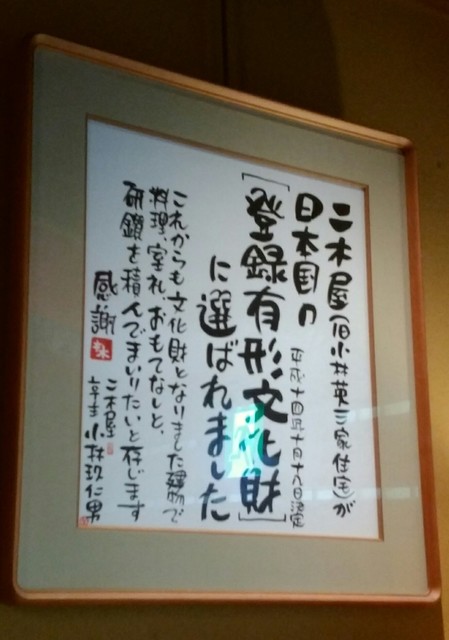 二木屋(旧小林英三家住宅)が
日本国の
平成十四年十月十八日認定
[登録有形文化財]
に選ばれました
これからも文化財となりました建物で
料理、室礼、おもてなしと、
研鑽を積んでまいりたいと存じます
感謝
二木屋
亭主 小林玖仁男